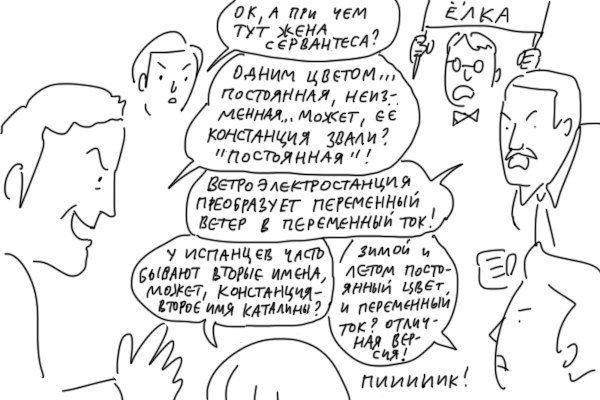 ОК, А ПРИ ЧЕМ
ТУТ ЖЕНА
СЕРВАНТЕСА?
ЁЛКА
ОДНИМ ЦВЕТОМ...
ПОСТОЯННАЯ, НЕИЗ-
МЕННАЯ... МОЖЕТ, ЕЁ
КОНСТАНЦИЯ ЗВАЛИ?
"ПОСТОЯННАЯ"!
ВЕТРОЭЛЕКТРОСТАНЦИЯ
ПРЕОБРАЗУЕТ ПЕРЕМЕННЫЙ
ВЕТЕР В ПЕРЕМЕННЫЙ ТОК!
У ИСПАНЦЕВ ЧАСТО
БЫВАЮТ ВТОРЫЕ ИМЕНА,
МОЖЕТ, КОНСТАНЦИЯ-
ВТОРОЕ ИМЯ КАТАЛИНЫ?
ЗИМОЙ И
ЛЕТОМ ПОСТО-
ЯННЫЙ ЦВЕТ,
И ПЕРЕМЕННЫЙ
ТОК? ОТЛИЧ-
НАЯ ВЕР-
СИЯ!
ПИИИИИК!